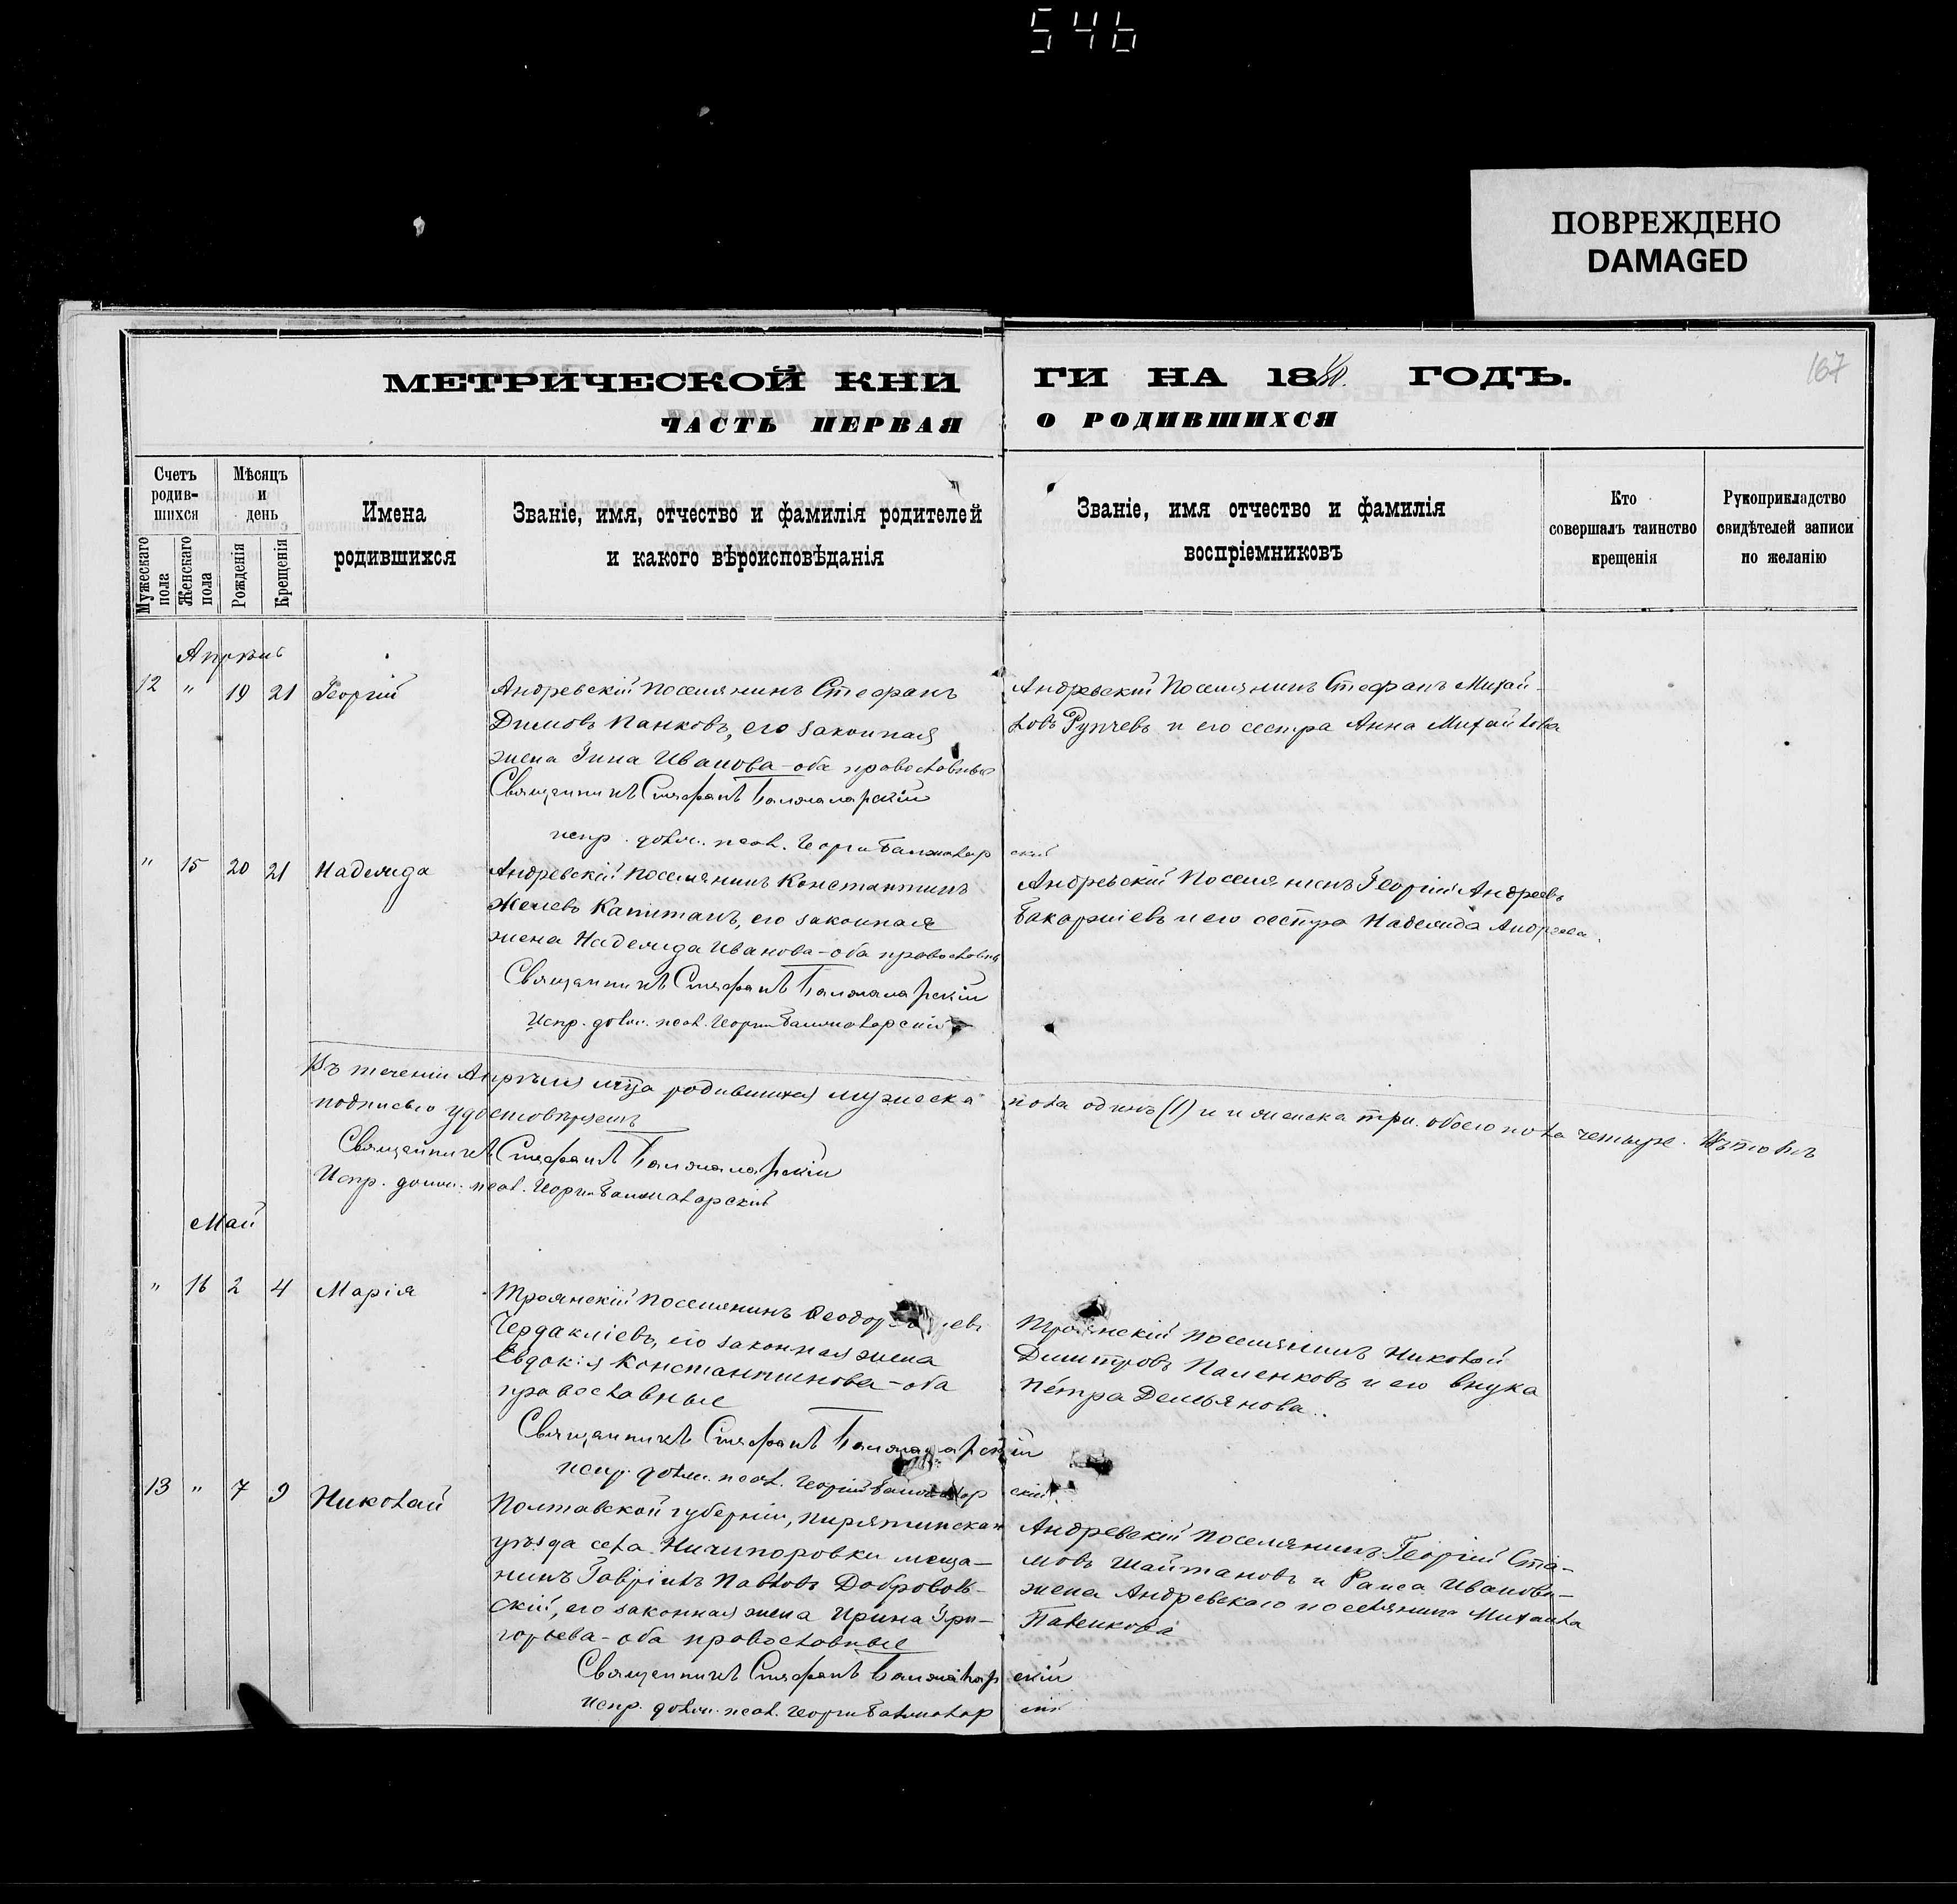 546
ПОВРЕЖДЕНО
DAMAGED
167
МЕТРИЧЕСКОЙ КНИ ГИ НА 1880 ГОДЪ.
ЧАСТЬ ПЕРВАЯ О РОДИВШИХСЯ
Счетъ родив-шихся
Мужескаго пола
Женскаго пола
Мѣсяцъ и день
Рожденія
Крещенія
Имена родившихся
Званіе, имя, отчество и фамилія родителей
и какого вѣроисповѣданія
Званіе, имя отчество и фамилія
воспріемниковъ
Кто
совершалъ таинство
крещенія
Рукоприкладство
свидѣтелей записи
по желанію
Апрѣль
12 " 19 21 Георгій
Андревскій поселянинъ Стефанъ
Димовъ Панковъ, его законная
жена Иванова - оба православные
Священникъ Стефанъ Балжаларскій
испр. долж. псал. Георгій Балжаларскій
Андревскій Поселянинъ Стефанъ Михай-
ловъ Рупчевъ и его сестра Анна Михайлова
" 15 20 21 Надежда
Андревскій поселянинъ Константинъ
Желевъ Капитанъ, его законная
жена Надежда Иванова - оба православн
Священникъ Стефанъ Балжаларскій
Испр. долж. псал. Георгій Балжаларскій
Андревскій Поселянинъ Георгій Андреевъ
и его сестра Надежда Андреева
Въ теченіи Апрѣля мѣца родившихся мужеска пола одинъ (1) и женска три. обоего пола четыре.
подписью удостовѣряемъ
Священникъ Стефанъ Балжаларскій
Испр. долж. псал. Георгій Балжаларскій
Май
" 16 2 4 Марія
Троянскій поселянинъ Ѳеодоръ
Чердакліевъ, его законная жена
Евдокія Константинова - оба
православные
Священникъ Стефанъ Балжаларскій
испр. долж. псал. Георгій Балжаларскій
Троянскій поселянинъ Николай
Димитровъ Паленковъ и его внука
Петра Демьянова..
13 " 7 9 Николай
Полтавской губерніи, Пирятинскаго
уѣзда села Ничипоровки мѣща-
нинъ Гавріилъ Павловъ Доброволь-
скій, его законная жена Ирина Гри-
горьева - оба православные
Священникъ Стефанъ Балжаларскій
Испр. долж. псал. Георгій Балжаларскій
Андревскій поселянинъ Георгій Ста-
мовъ Шайтановъ и Раиса Иванова-
жена Андревскаго поселянина Михаила
Паленкова